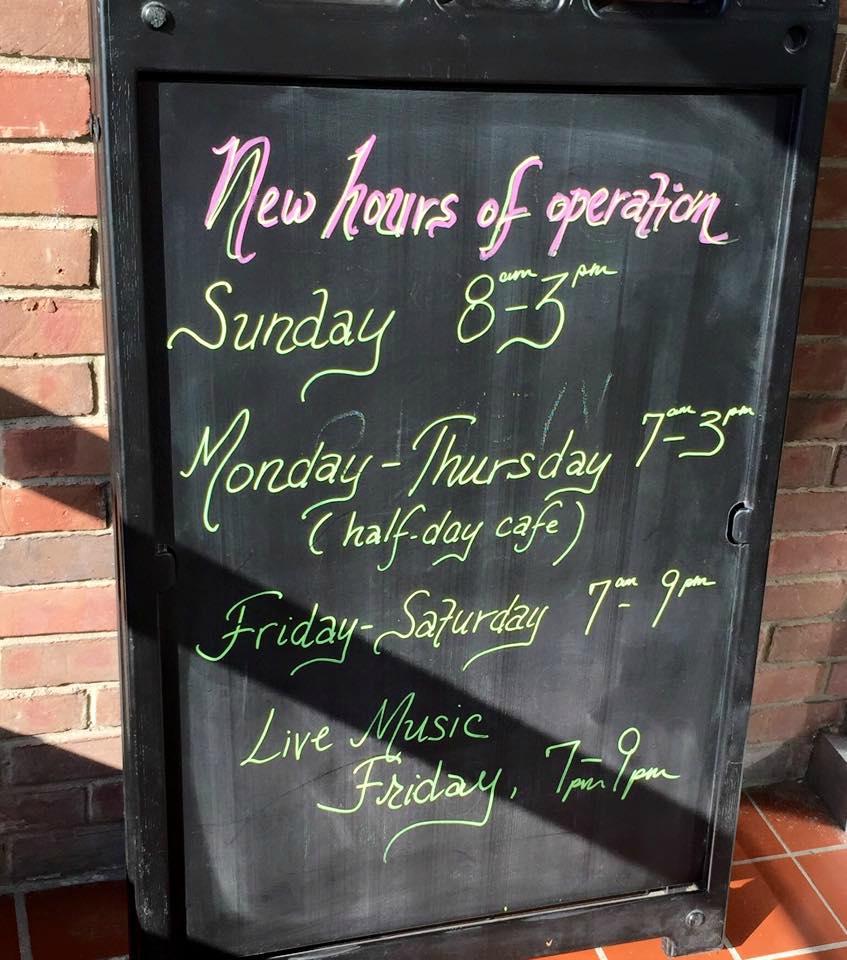 New hours of operation
Sunday 8am-3pm
Monday-Thursday 7am-3pm
(half-day cafe)
Friday-Saturday 7am-9pm
Live Music
Friday, 7pm-9pm